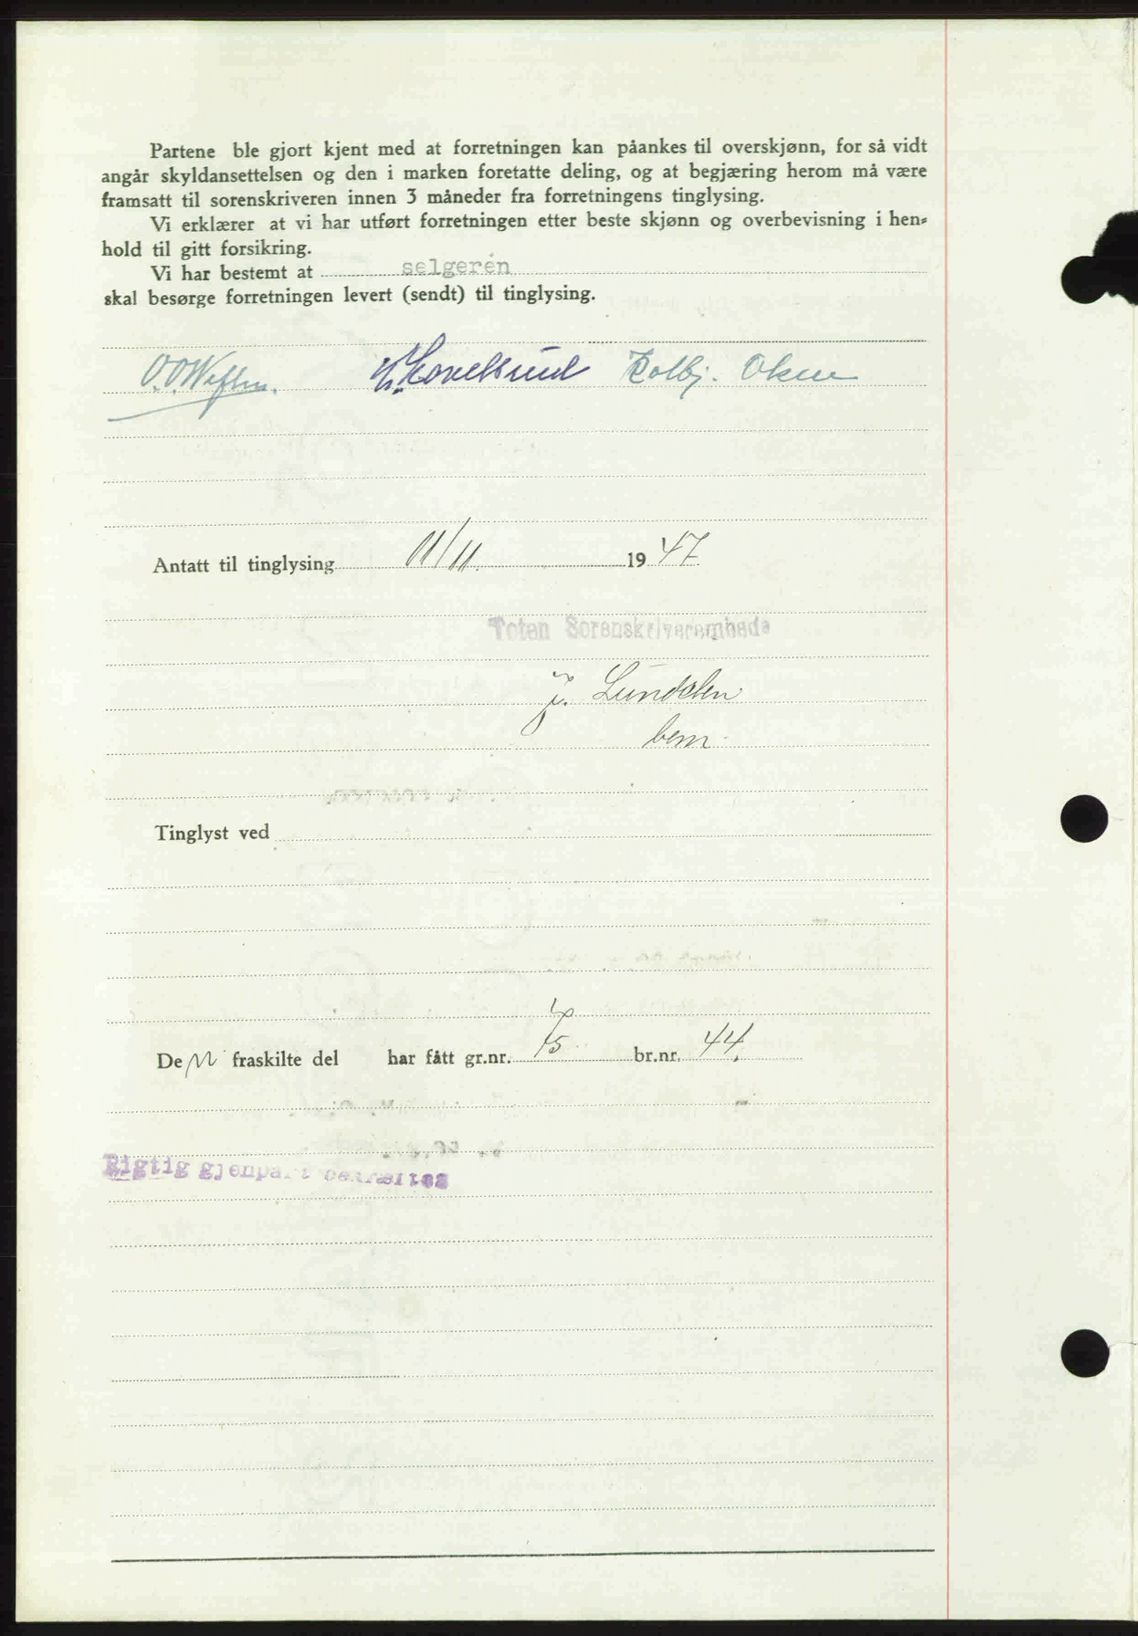 Partene ble gjort kjent med at forretningen kan påankes til overskjønn, for så vidt
angår skyldansettelsen og den i marken foretatte deling, og at begjæring herom må være
framsatt til sorenskriveren innen 3 måneder fra forretningens tinglysing.
Vi erklærer at vi har utført forretningen etter beste skjønn og overbevisning i hen-
hold til gitt forsikring.
Vi har bestemt at selgeren
skal besørge forretningen levert (sendt) til tinglysing.
Kolbj.
Antatt til tinglysing 11/11. 1947
Toten Sorenskriverembede
J. Lundsten
bem.
Tinglyst ved
De n fraskilte del har fått gr.nr. 75 br.nr. 44.
Rigtig gjenpart bekræftes